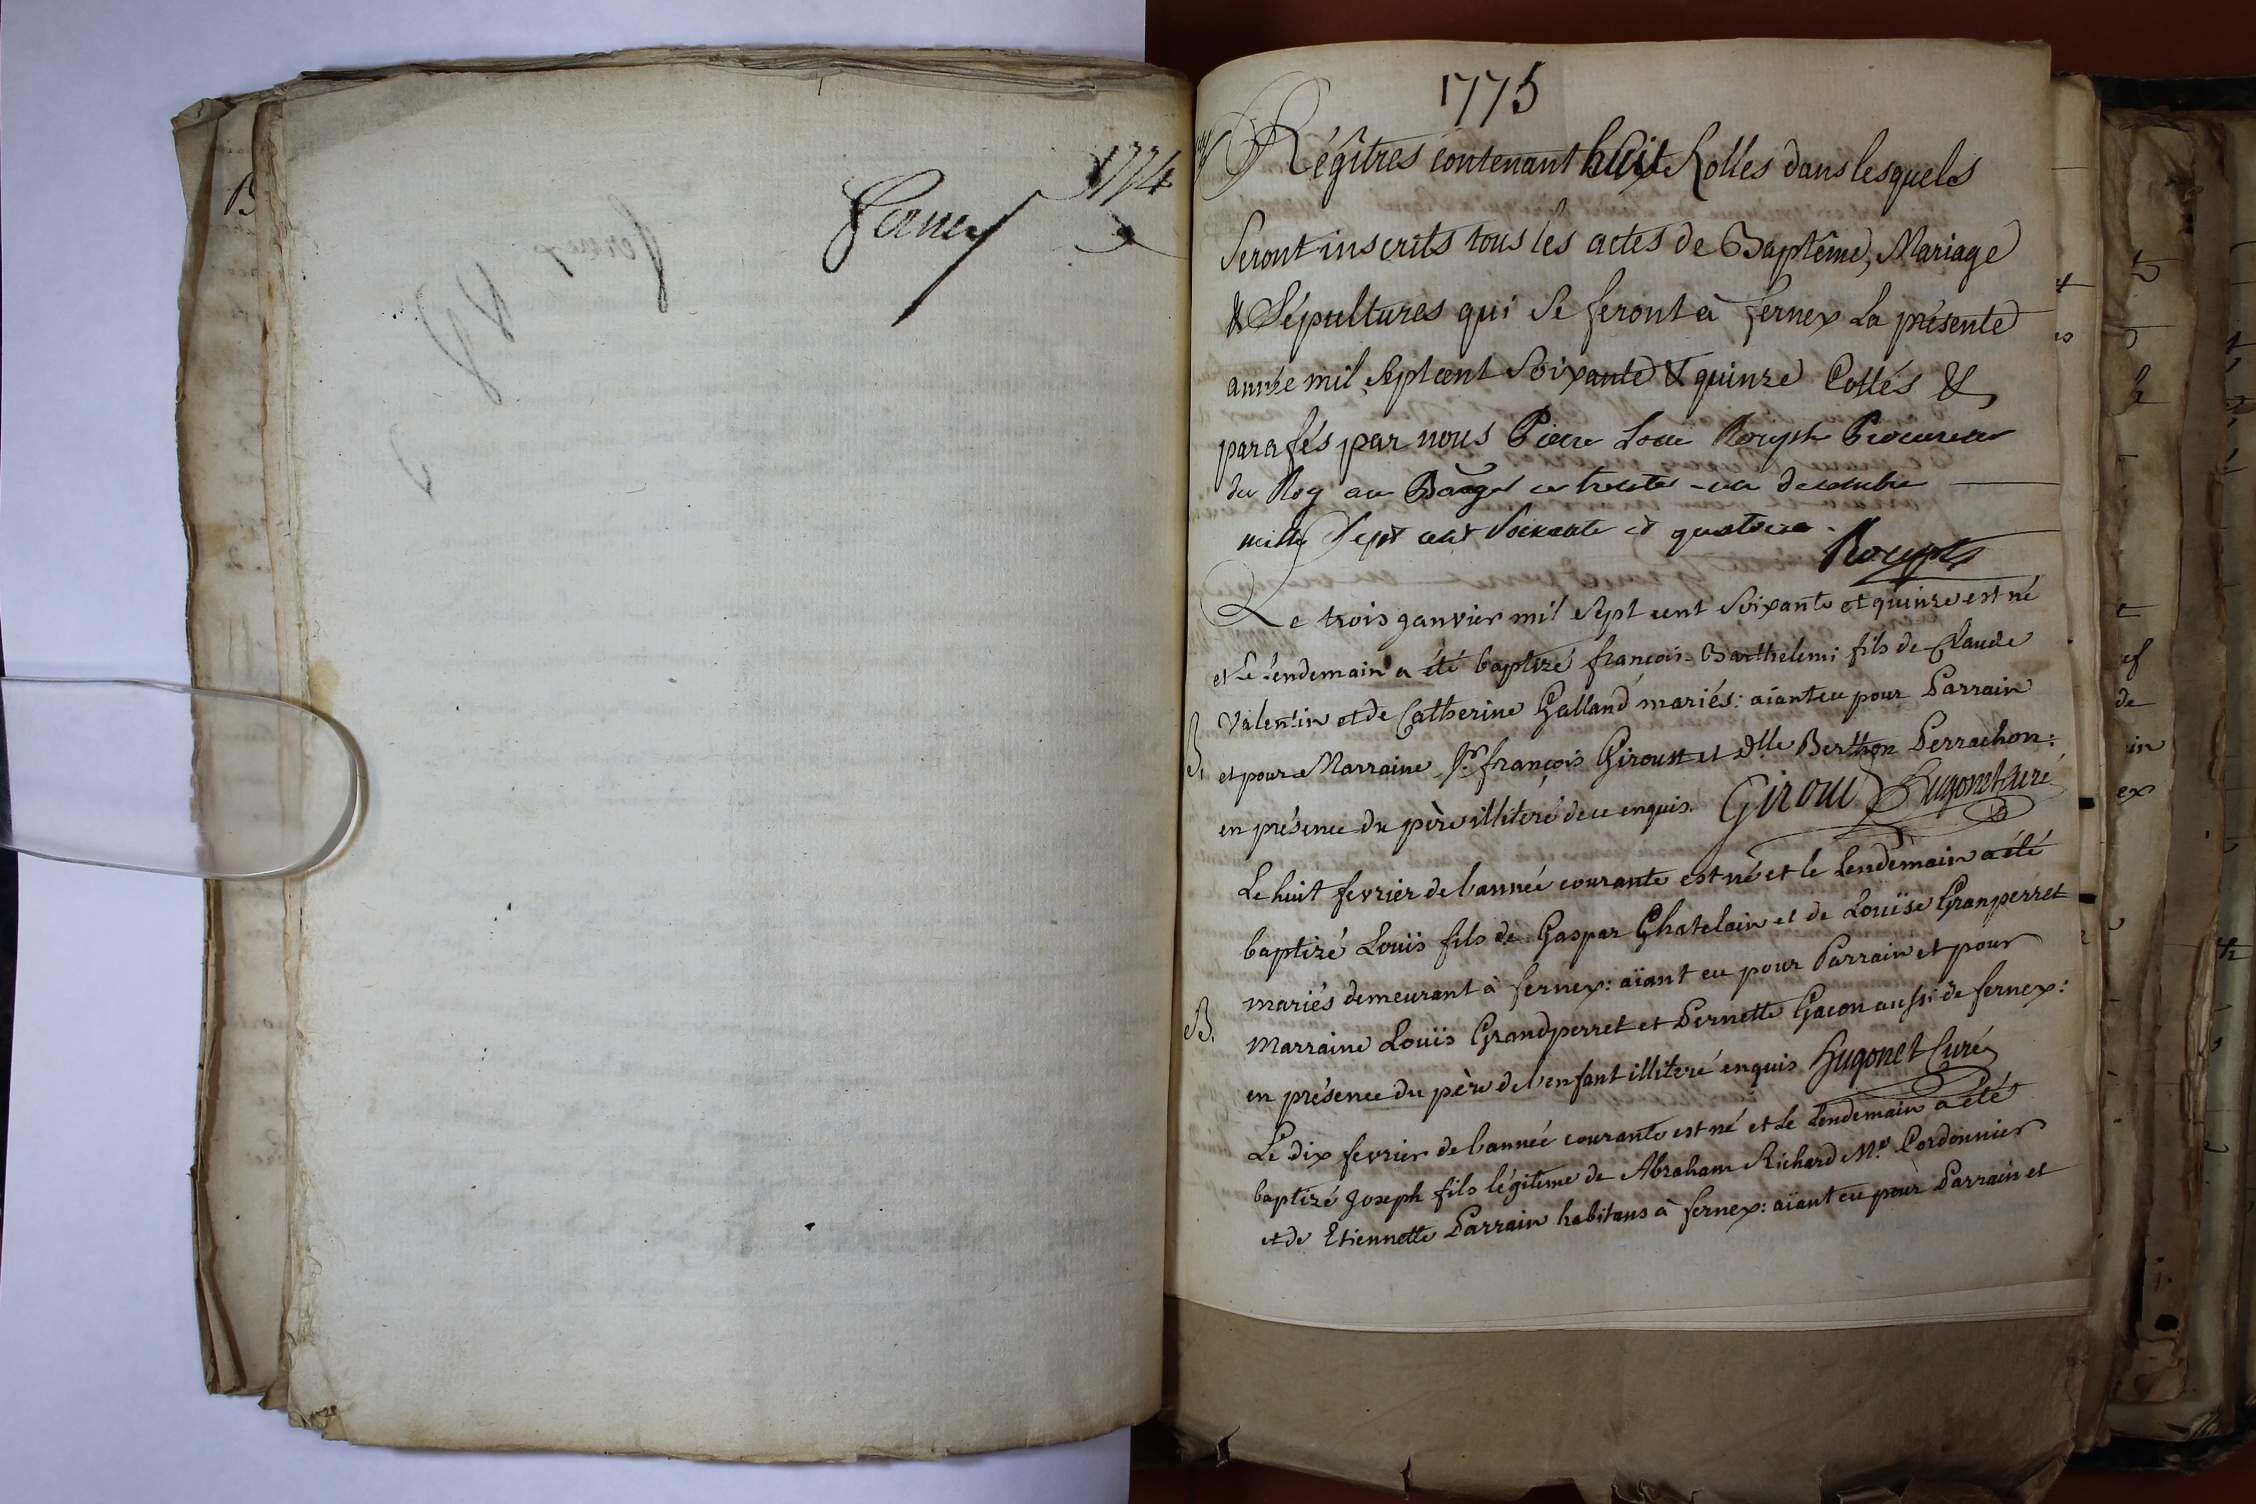 1774
Fernex
fernex
1775
Régîtres contenant huit Rolles dans lesquels
Seront inscrits tous les actes de Baptême, Mariage
& Sépultures qui Se feront à fernex La présente
année mil Septcent Soixante & quinze Cottés &
parafés par nous Pierre Loui Rouph Procureur
du Roy au Bage ce trente-un decembre
mille Sept cent Soixante et quatorze.
Rouph
Le trois janvier mil Sept cent Soixante et quinze est né
et Le Lendemain a été baptizé françois-Barthelemi fils de Claude
Valentin et de Catherine Galland mariés: aiant eu pour Parrain
B.
et pour Marraine Sr. françois Giroust et Dlle Berthon Perrachon:
en présence du père illiteré de ce enquis. Giroud Hugonet Curé
Le huit fevrier de l'année courante est né et le Lendemain a été
baptizé Louïs fils de Gaspar Chatelain et de Louïse Granperret
mariés demeurant à fernex: aïant eu pour Parrain et pour
B.
Marraine Louïs Grandperret et Pernette Gacon aussi de fernex:
en présence du père de l'enfant illiteré enquis Hugonet Curé
Le dix fevrier de l'année courante est né et Le Lendemain a été
baptizé Joseph fils légitime de Abraham Richard Me. Cordonnier
et de Etiennette Parrain habitans à fernex: aïant eu pour Parrain et